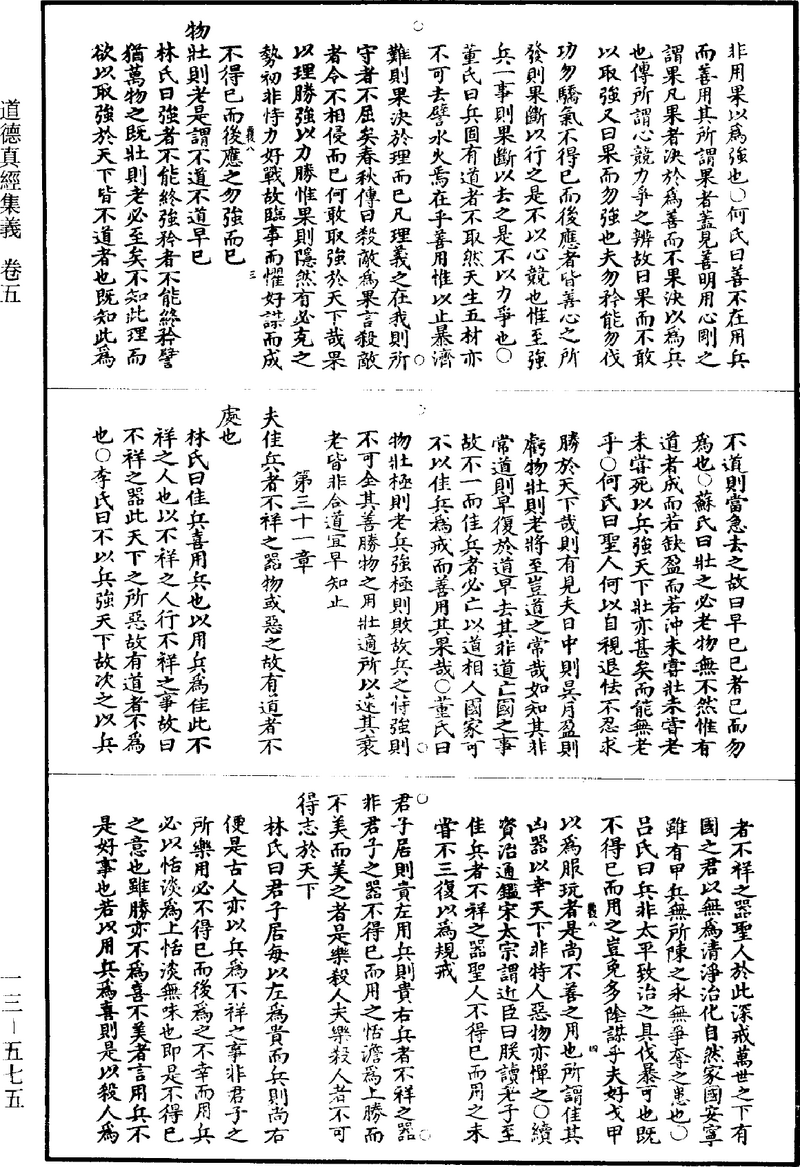 道德真經集義　卷五
一三－五七五
非用果以為強也○何氏曰善不在用兵
而善用其所謂果者蓋見善明用心剛之
謂果凡果者決於為善而不果決以為兵
也傳所謂心競力爭之辨故曰果而不敢
以取強又曰果而勿強也夫勿矜能勿伐
功勿驕氣不得已而後應者皆善心之所
發則果斷以行之是不以心競也惟至強
兵一事則果斷以去之是不以力爭也○
董氏曰兵固有道者不取然天生五材亦
不可去譬水火焉在乎善用惟以止暴濟
難則果決於理而已凡理義之在我則所
守者不屈矣春秋傳曰殺敵為果言殺敵
者令不相侵而已何敢取強於天下哉果
以理勝強以力勝惟果則隱然有必克之
勢初非恃力好戰故臨事而懼好謀而成
不得已而後應之勿強而已
物壯則老是謂不道不道早已
林氏曰強者不能終強矜者不能終矜譬
猶萬物之既壯則老必至矣不知此理而
欲以取強於天下皆不道者也既知此為
不道則當急去之故曰早已已者已而勿
為也○蘇氏曰壯之必老物無不然惟有
道者成而若缺盈而若沖未嘗壯未嘗老
未嘗死以兵強天下壯亦甚矣而能無老
乎○何氏曰聖人何以自視退怯不忍求
勝於天下哉則有見夫日中則昃月盈則
虧物壯則老將至豈道之常哉如知其非
常道則早復於道早去其非道亡國之事
故不一而佳兵者必亡以道相人國家可
不以佳兵為戒而善用其果哉○董氏曰
物壯極則老兵強極則敗故兵之恃強則
不可全其善勝物之用壯適所以速其衰
老皆非合道宜早知止
第三十一章
夫佳兵者不祥之器物或惡之故有道者不
處也
林氏曰佳兵喜用兵也以用兵為佳此不
祥之人也以不祥之人行不祥之事故曰
不祥之器此天下之所惡故有道者不為
也○李氏曰不以兵強天下故次之以兵
者不祥之器聖人於此深戒萬世之下有
國之君以無為清淨治化自然家國安寧
雖有甲兵無所陳之永無爭奪之患也○
呂氏曰兵非太平致治之具伐暴可也既
不得已而用之豈免多陰謀乎夫好戈甲
以為服玩者是尚不善之用也所謂佳其
凶器以幸天下非特人惡物亦憚之○續
資治通鑑宋太宗謂近臣曰朕讀老子至
佳兵者不祥之器聖人不得已而用之未
嘗不三復以為規戒
君子居則貴左用兵則貴右兵者不祥之器
非君子之器不得已而用之恬澹為上勝而
不美而美之者是樂殺人夫樂殺人者不可
得志於天下
林氏曰君子居每以左為貴而兵則尚右
便是古人亦以兵為不祥之事非君子之
所樂用必不得已而後為之不幸而用兵
必以恬淡為上恬淡無味也即是不得已
之意也雖勝亦不為喜不美者言用兵不
是好事也若以用兵為喜則是以殺人為